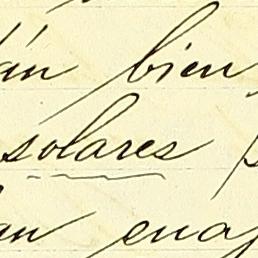 án bien
solares
an enaj